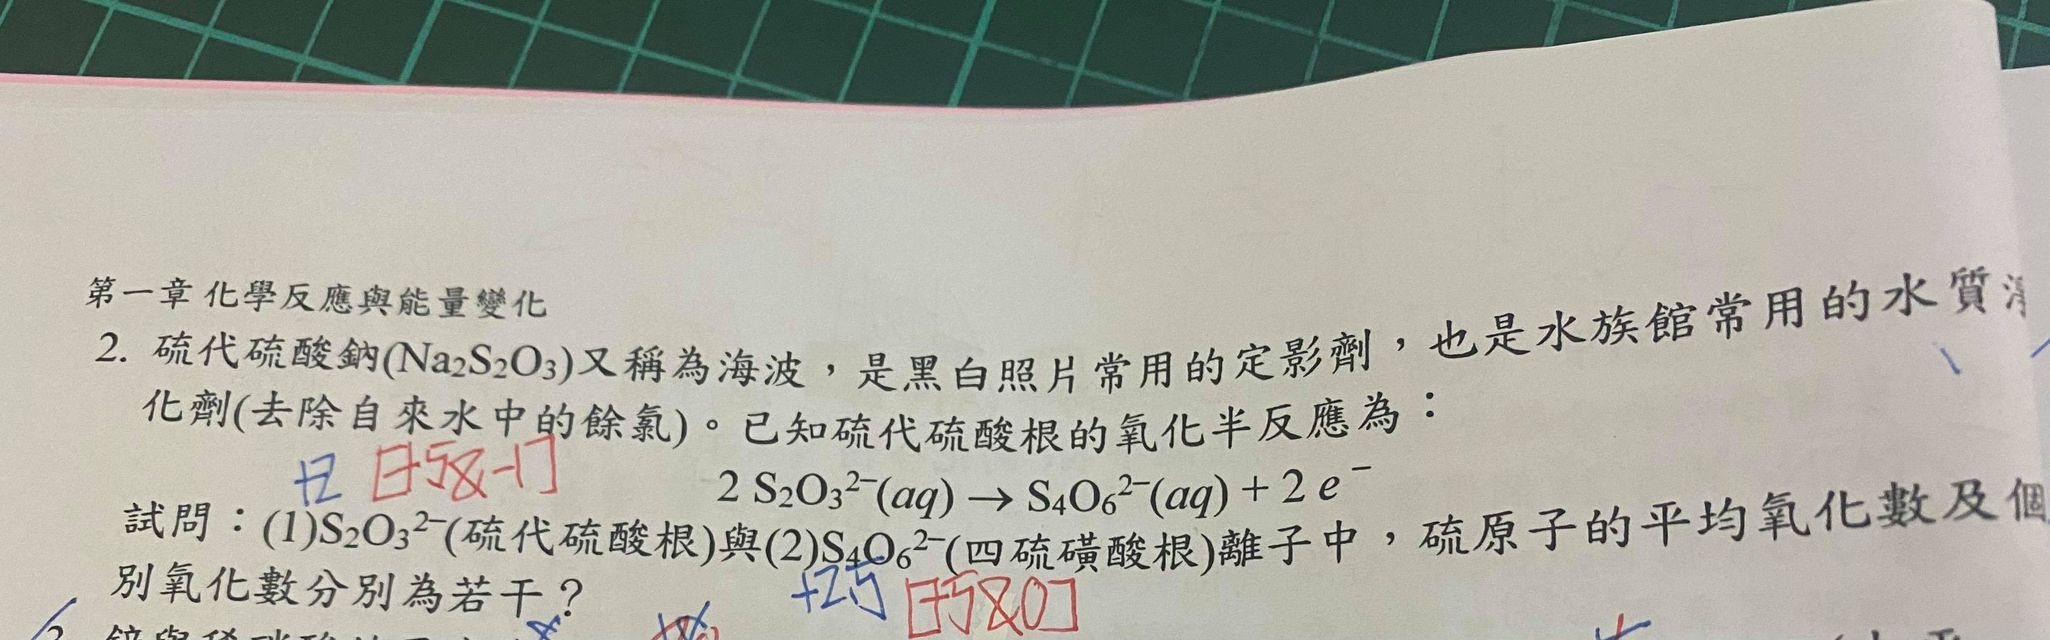 第一章 化學反應與能量變化
2. 硫代硫酸鈉(Na₂S₂O₃)又稱為海波,是黑白照片常用的定影劑,也是水族館常用的水質
化劑(去除自來水中的餘氯)。已知硫代硫酸根的氧化半反應為:
+2 [+5&-1]
2 S₂O₃²⁻(aq) → S₄O₆²⁻(aq) + 2 e⁻
試問:(1)S₂O₃²⁻(硫代硫酸根)與(2)S₄O₆²⁻(四硫磺酸根)離子中,硫原子的平均氧化數及個
別氧化數分別為若干?
+2.5 [+5&0]